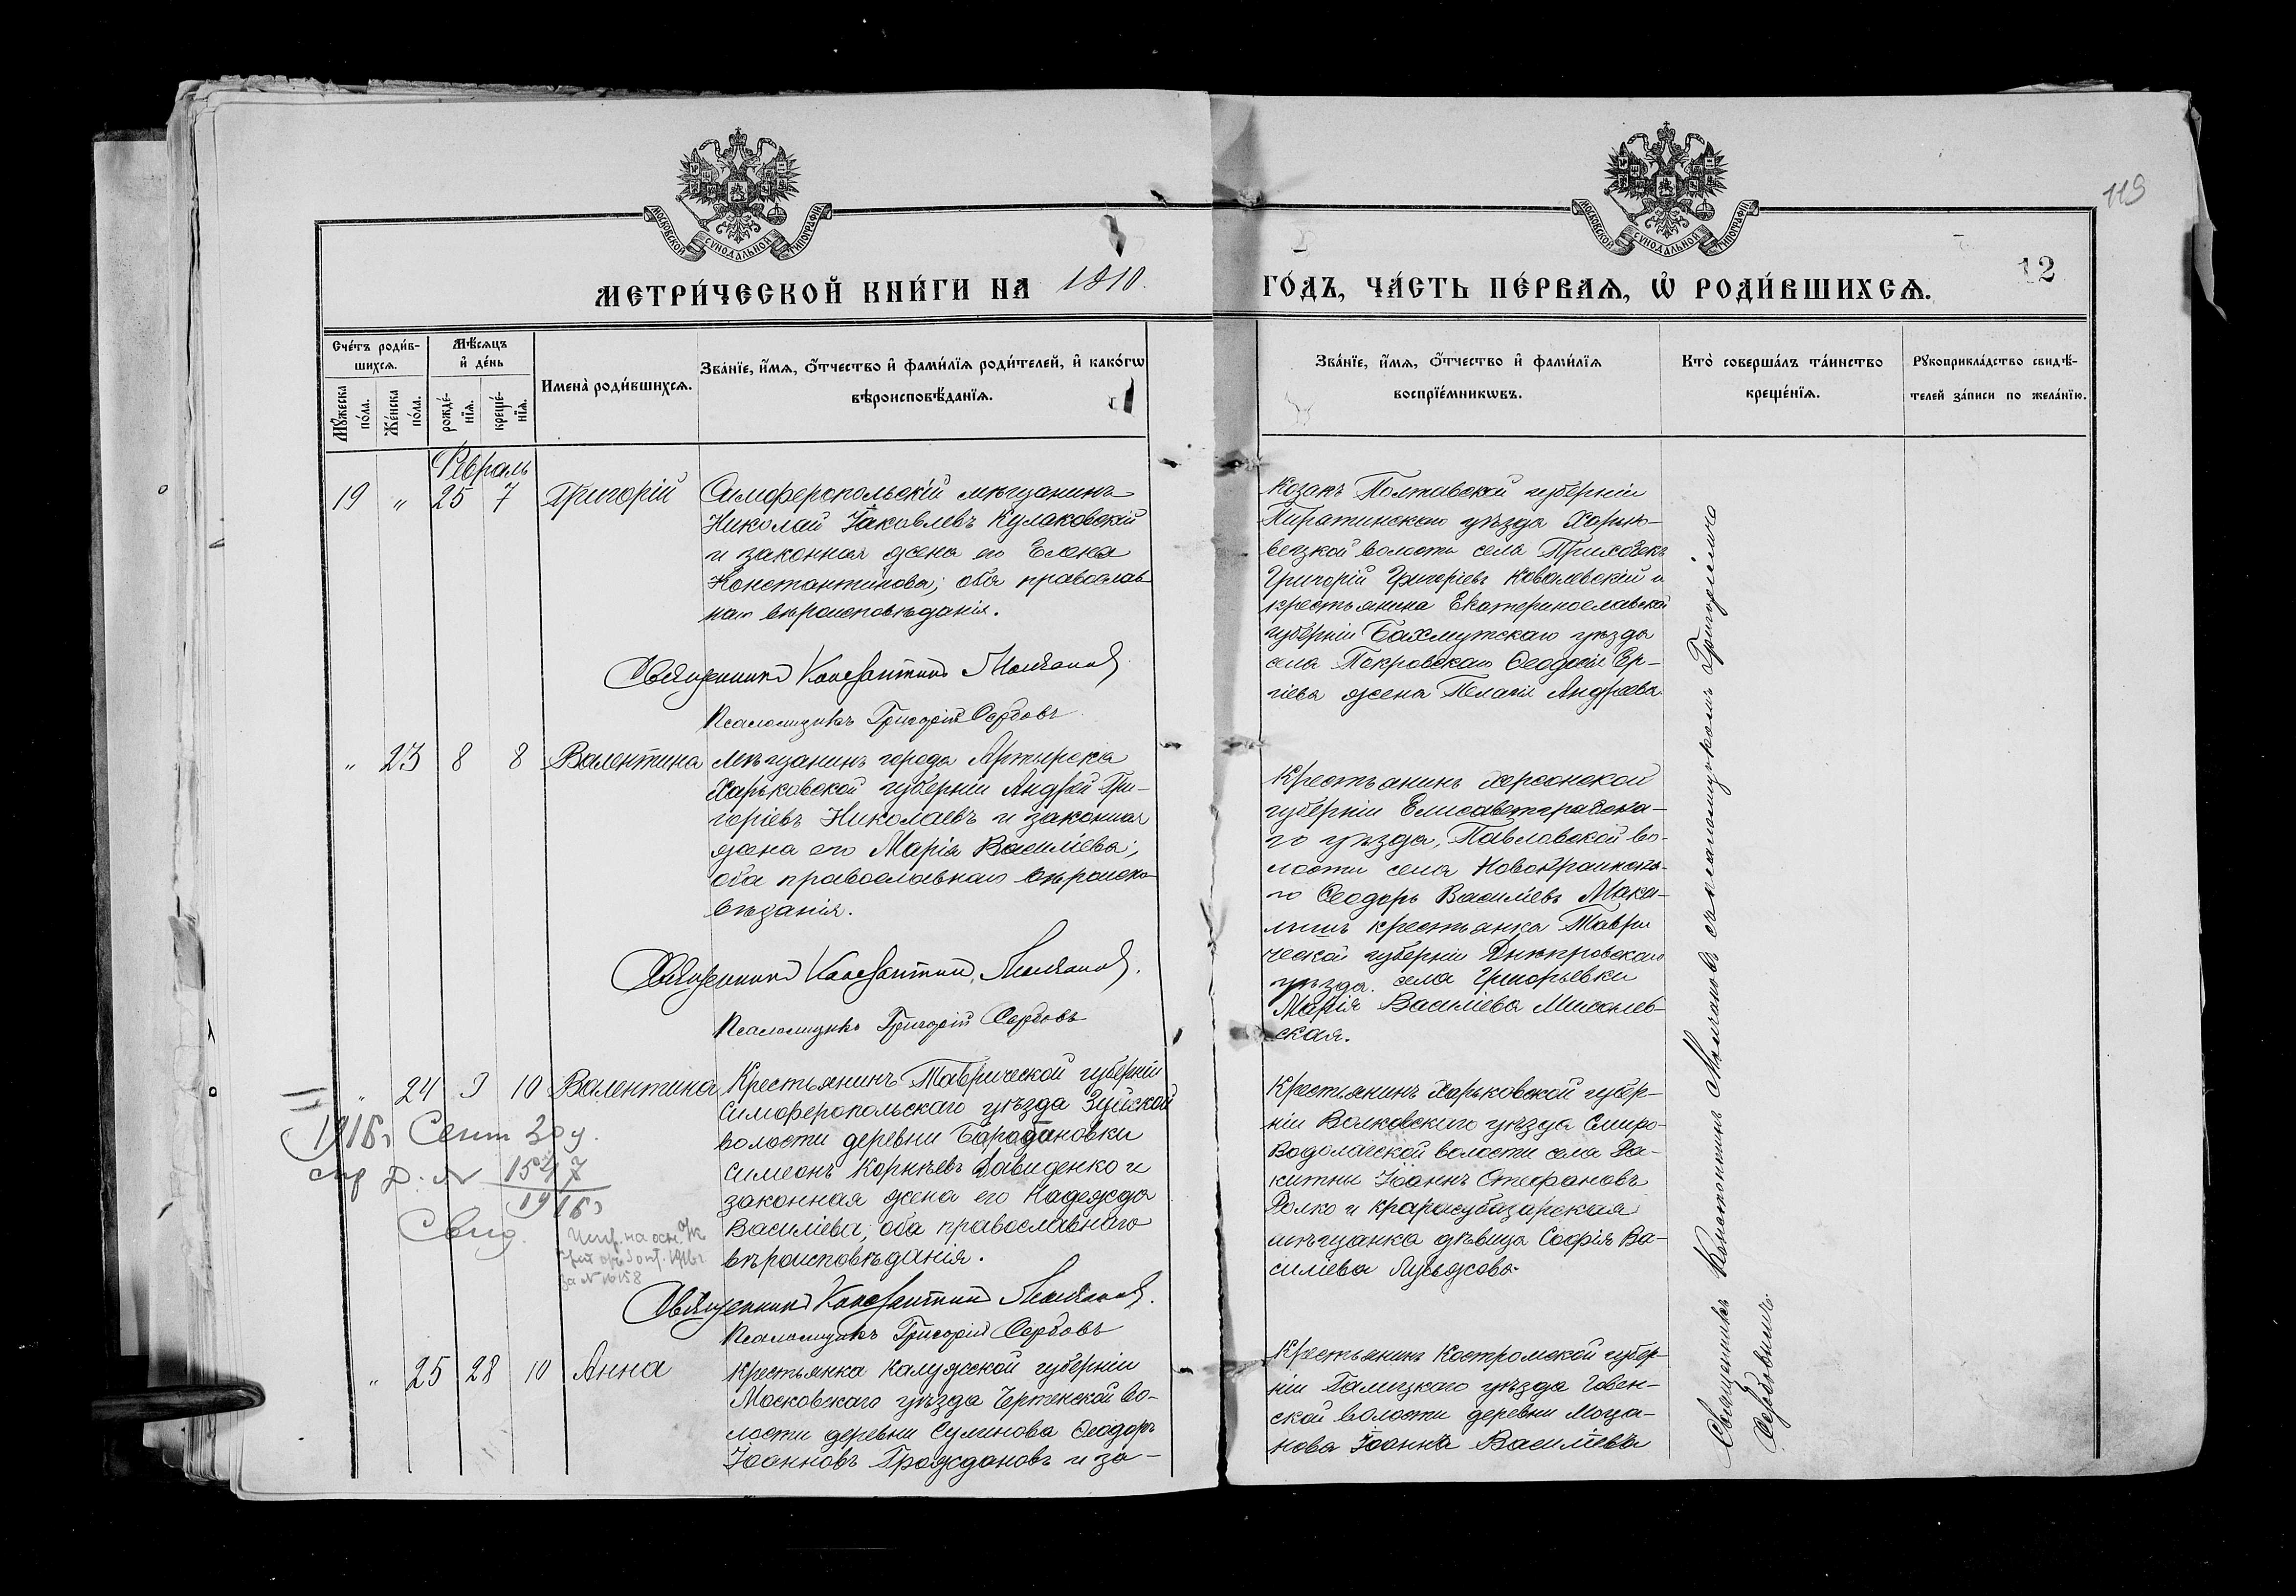 119
МОСКОВСКОЙ СѴНОДАЛЬНОЙ ТИПОГРАФІИ
МОСКОВСКОЙ СѴНОДАЛЬНОЙ ТИПОГРАФІИ
МЕТРИ́ЧЕСКОЙ КНИ́ГИ НА 1910. ГО́ДЪ, ЧА́СТЬ ПЕ́РВАѦ, Ѡ҆ РОДИ́ВШИХСѦ.
12
Сче́тъ роди́в-
шихсѧ.
Мꙋ́жеска по́ла.
Же́нска по́ла.
Мѣ́сѧцъ
и҆ де́нь
рожде́-
нїѧ.
креще́-
нїѧ.
Имена̀ роди́вшихсѧ.
Зва́нїе, и҆́мѧ, ѻ҆́тчество и҆ фами́лїѧ роди́телей, и҆ како́гѡ
вѣроисповѣ́данїѧ.
Зва́нїе, и҆́мѧ, ѻ҆́тчество и҆ фами́лїѧ
воспрїе́мникѡвъ.
Кто̀ соверша́лъ та́инство
креще́нїѧ.
Рꙋкоприкла́дство свидѣ́-
телей за́писи по жела́нїю.
Февраль
19 " 25 7 Григорій
Симферопольскій мѣщанинъ
Николай Іаковлевъ Кулаковскій
и законная жена его Елена
Константинова; оба православ-
наго вѣроисповѣданія.
Священникъ Константинъ Молчановъ
Псаломщикъ Григорій Сербовъ
Козакъ Полтавской губерніи
Пирятинскаго уѣзда
волости села
Григорій Григоріевъ Ковалевскій и
крестьянина Екатеринославской
губерніи Бахмутскаго уѣзда
села Покровскаго Ѳеодосія Сер-
гіева жена Пелагія Андреева
" 23 8 8 Валентина
Мѣщанинъ города
Харьковской губерніи Андрей Гри-
горіевъ Николаевъ и законная
жена его Марія Василіева;
оба православнаго вѣроиспо-
вѣданія.
Священникъ Константинъ Молчановъ.
Псаломщикъ Григорій Сербовъ
Крестьянинъ Херсонской
губерніи Елисаветградска-
го уѣзда, Павловской во-
лости села
го Ѳеодоръ Василіевъ
крестьянка Таври
ческой губерніи Днѣпровскаго
уѣзда. села Григорьевки
Марія Василіева
ская.
" 24 9 10 Валентина
Крестьянинъ Таврической губерніи
Симферопольскаго уѣзда Зуйской
волости деревни Барабановки
Симеонъ Корнѣевъ Давиденко и
законная жена его Надежда
Василіева; оба православнаго
вѣроисповѣданія.
Священникъ Константинъ Молчановъ.
Псаломщикъ Григорій Сербовъ
1916г Сент 30 д.
1916
Свид.
Крестьянинъ Харьковской губер-
ніи Валковскаго уѣзда
Водолагской волости села Ра-
китни Іоаннъ Стефановъ
и Карасубазарская
мѣщанка дѣвица Софія Ва-
силіева
" 25 28 10 Анна
Крестьянка Калужской губерніи
Мосальскаго уѣзда волости
лости деревни Ѳеодоръ
Іоанновъ Граждановъ и за-
Крестьянинъ Костромской губер-
ніи Галичскаго уѣзда
ской волости деревни
нова Іоанна Василіева
Священникъ Константинъ Молчановъ съ псаломщикомъ Григоріемъ
Сербовымъ.